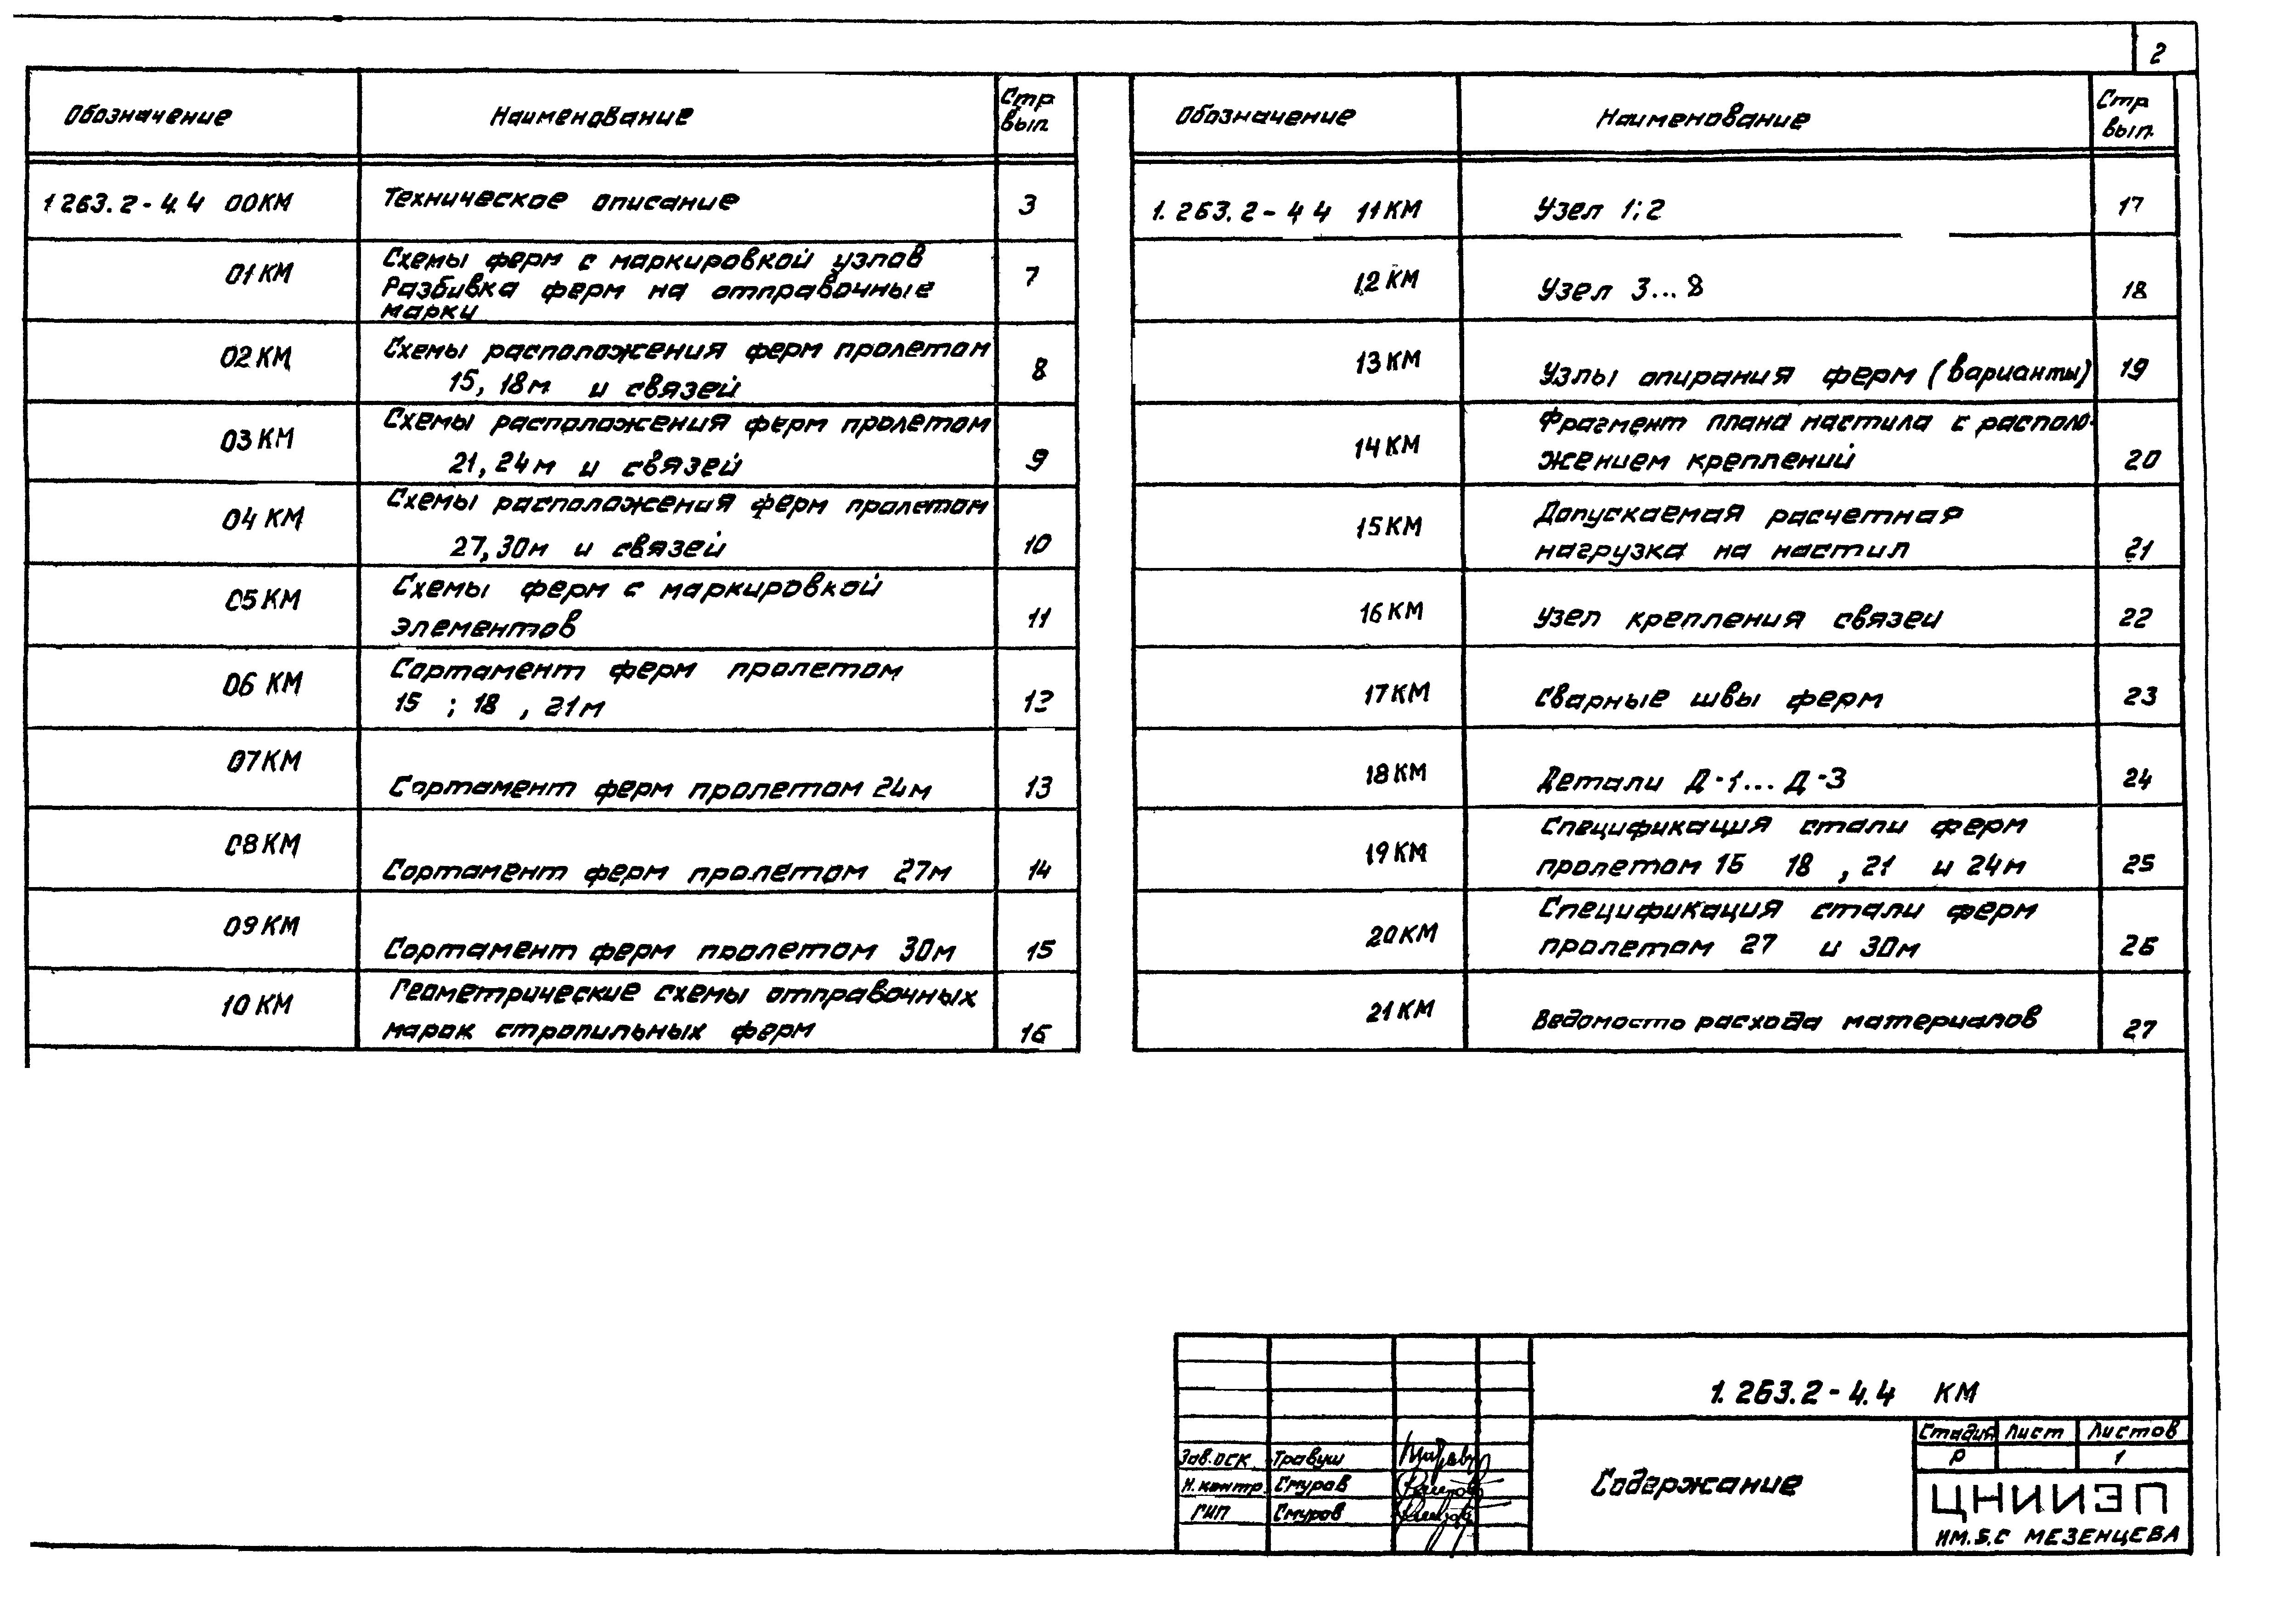 2
Обозначение Наименование Стр вып
1 263.2-4.4 00КМ Техническое описание 3
01КМ Схемы ферм с маркировкой узлов
Разбивка ферм на отправочные
марки 7
02КМ Схемы расположения ферм пролетом
15, 18м и связей 8
03КМ Схемы расположения ферм пролетом
21, 24м и связей 9
04КМ Схемы расположения ферм пролетом
27, 30м и связей 10
05КМ Схемы ферм с маркировкой
элементов 11
06 КМ Сортамент ферм пролетом
15 ; 18 , 21м 12
07КМ Сортамент ферм пролетом 24м 13
08КМ Сортамент ферм пролетом 27м 14
09КМ Сортамент ферм пролетом 30м 15
10 КМ Геометрические схемы отправочных
марок стропильных ферм 16
Обозначение Наименование Стр вып.
1. 263.2-4 4 11КМ Узел 1; 2 17
12КМ Узел 3...8 18
13КМ Узлы опирания ферм (варианты) 19
14КМ Фрагмент плана настила с располо-
жением креплений 20
15КМ Допускаемая расчетная
нагрузка на настил 21
16КМ Узел крепления связей 22
17КМ Сварные швы ферм 23
18КМ Детали Д-1...Д-3 24
19КМ Спецификация стали ферм
пролетом 15 18 , 21 и 24м 25
20КМ Спецификация стали ферм
пролетом 27 и 30м 26
21КМ Ведомость расхода материалов 27
1. 263.2-4.4 КМ
Зав.ОСК Травуш
Н.контр. Смуров
ГИП Смуров
Содержание
Стадия Лист Листов
Р 1
ЦНИИЭП
ИМ. Б.С МЕЗЕНЦЕВА